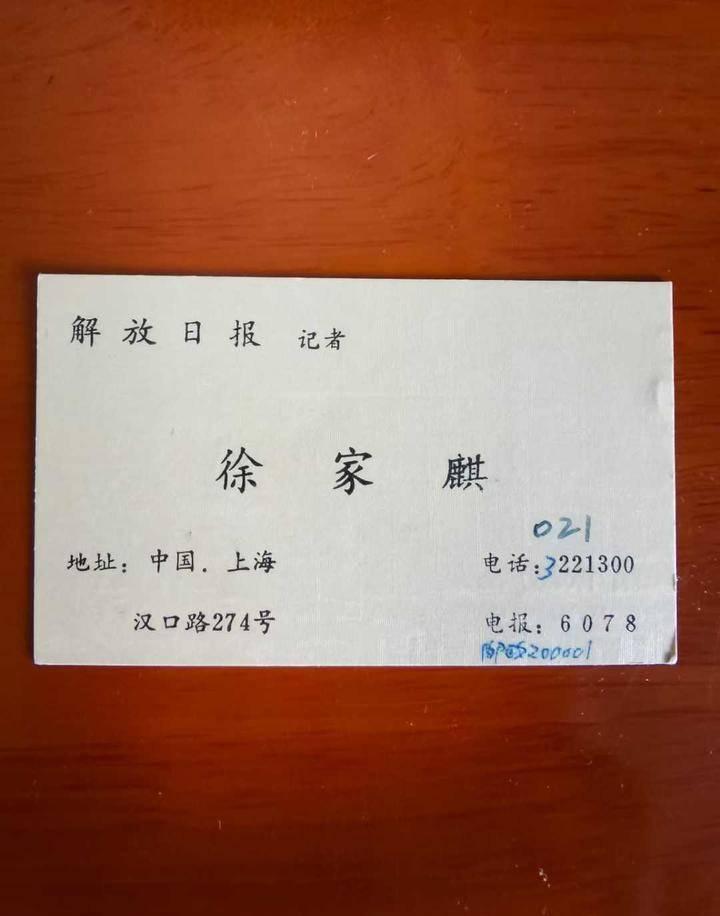 解放日报 记者
徐家麒
021
地址：中国．上海 电话：3221300
汉口路274号 电报：6078
邮政200001